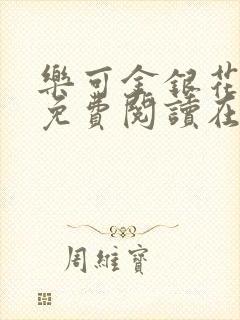 樂可金銀花
免費閱讀在
周維寶